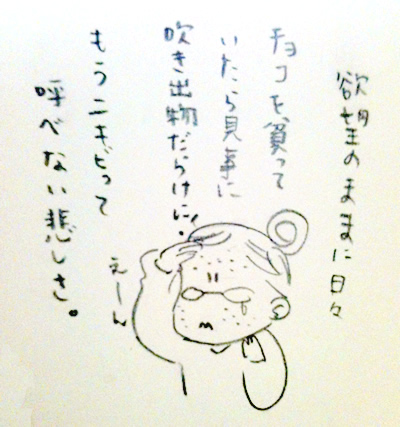 欲望のままに日々
チョコを貧って
いたら見事に
吹き出物だらけに!
もうニキビって
呼べない悲しさ。
えーん